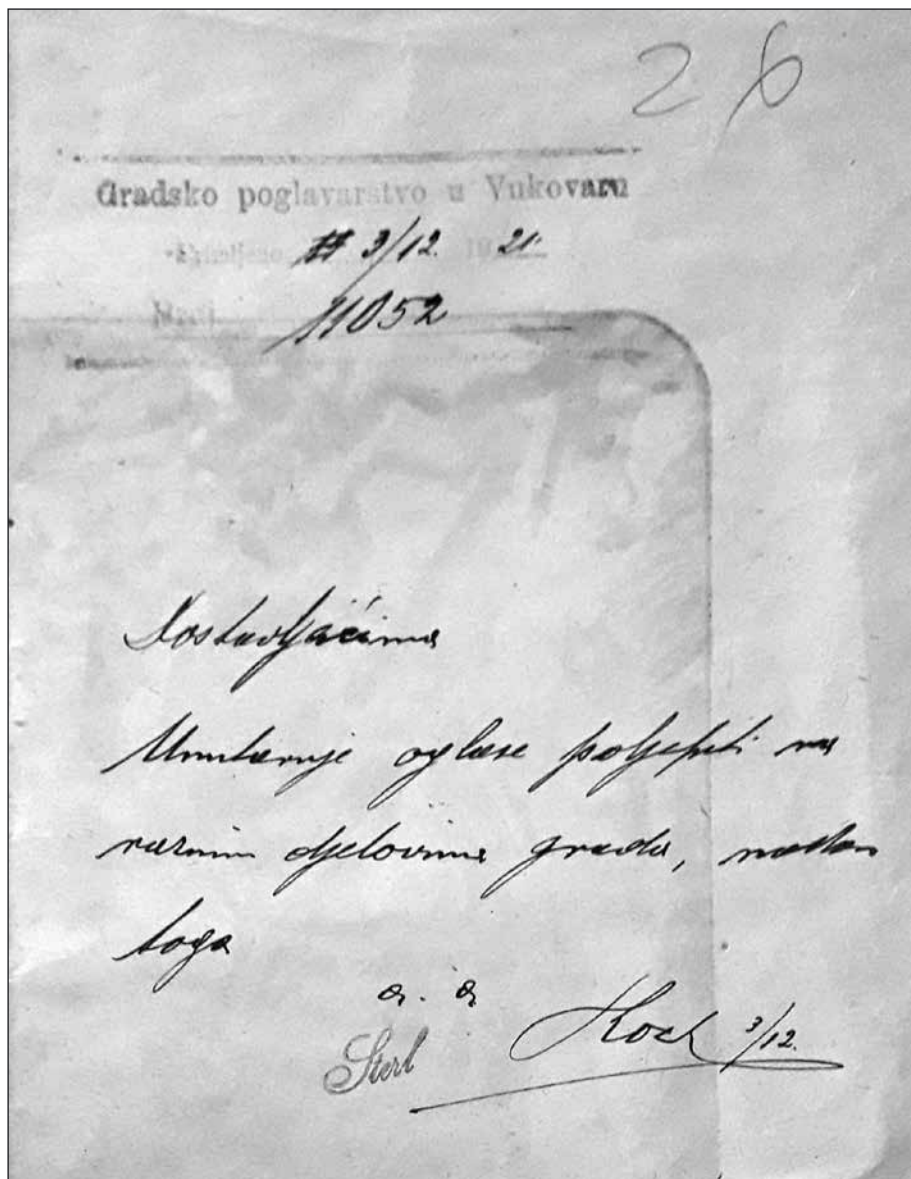 26
Gradsko poglavarstvo u Vukovaru
Primljeno 3/12. 1921.
Broj 11052
Dostavljačima
Unutarnje oglase poljepiti na
raznim djelovima grada, nakon
toga
a. a.
Koch 3/12.
Sterl